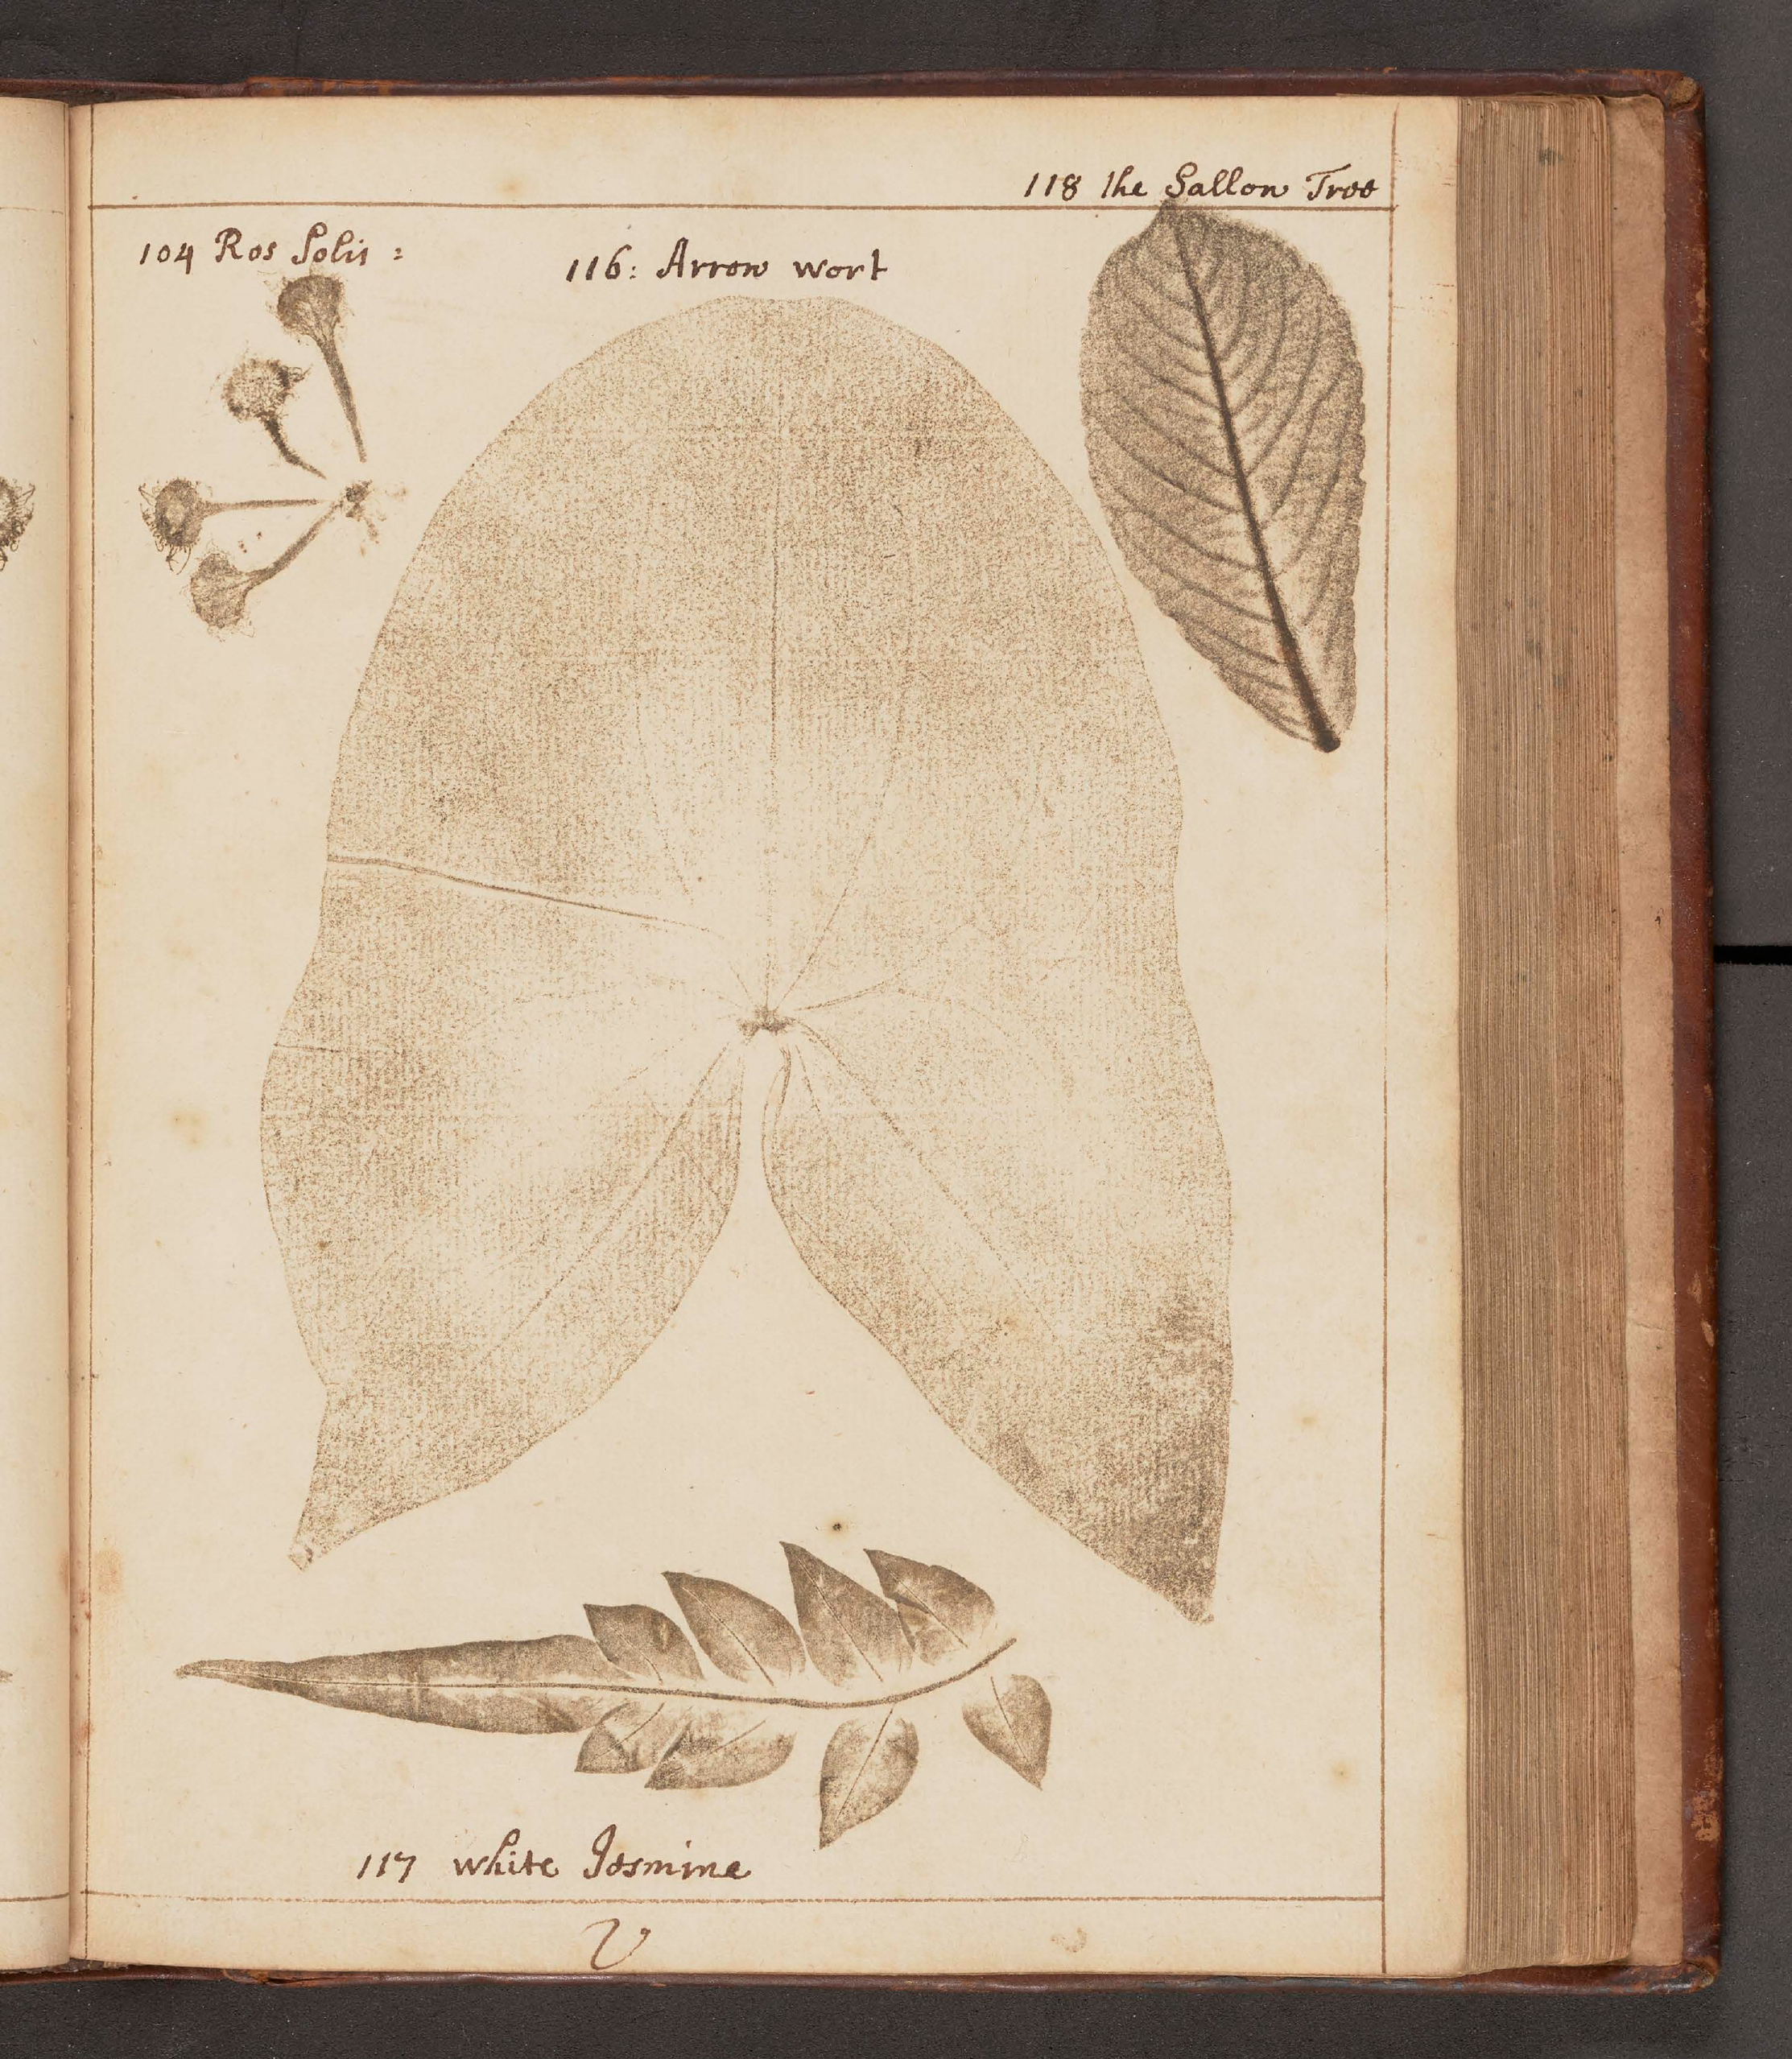 118 the Sallow Tree
104 Ros Solis :
116: Arrow wort
117 white Jesmine